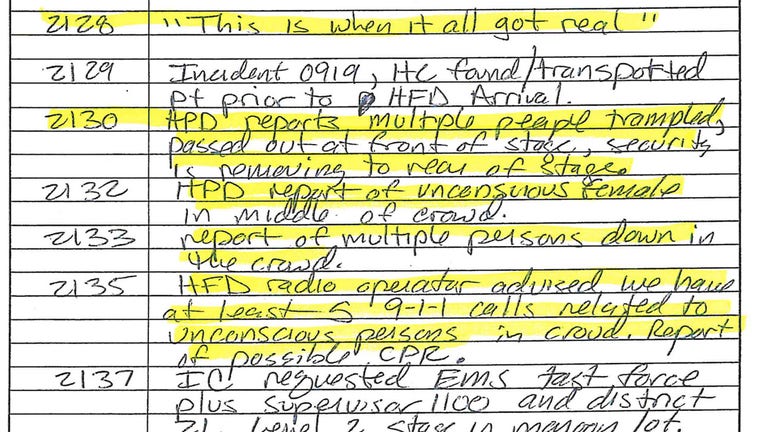 2128 "This is when it all got real"
2129 Incident 0919, HC found/transported
pt prior to HFD Arrival.
2130 HPD reports multiple people trampled,
passed out at front of stage, security
is removing to rear of stage.
2132 HPD report of unconscious female
in middle of crowd.
2133 report of multiple persons down in
the crowd.
2135 HFD radio operator advised we have
at least 5 9-1-1 calls related to
unconscious persons in crowd. Report
of possible CPR.
2137 IC requested EMS task force
plus supervisor 1100 and district
21. Level 2 stage in maroon lot.